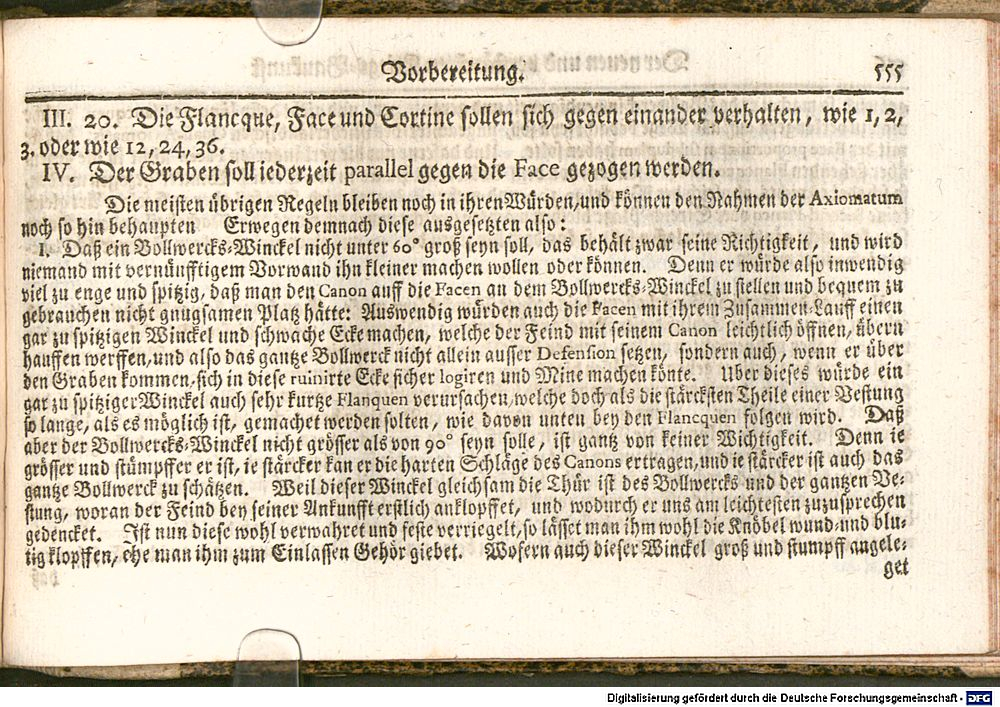 Vorbereitung. 555
III. 20. Die Flancque, Face und Cortine sollen sich gegen einander verhalten, wie 1, 2,
3. oder wie 12, 24, 36.
IV. Der Graben soll iederzeit parallel gegen die Face gezogen werden.
Die meisten übrigen Regeln bleiben noch in ihren Würden, und können den Nahmen der Axiomatum
noch so hin behaupten Erwegen demnach diese ausgesetzten also:
I. Daß ein Bollwercks-Winckel nicht unter 60° groß seyn soll, das behält zwar seine Richtigkeit, und wird
niemand mit vernünfftigem Vorwand ihn kleiner machen wollen oder können. Denn er würde also inwendig
viel zu enge und spitzig, daß man den Canon auff die Facen an dem Bollwercks-Winckel zu stellen und bequem zu
gebrauchen nicht gnugsamen Platz hätte: Auswendig würden auch die Facen mit ihrem Zusammen-Lauff einen
gar zu spitzigen Winckel und schwache Ecke machen, welche der Feind mit seinem Canon leichtlich öffnen, übern
hauffen werffen, und also das gantze Bollwerck nicht allein ausser Defension setzen, sondern auch, wenn er über
den Graben kommen, sich in diese ruinirte Ecke sicher logiren und Mine machen könte. Uber dieses würde ein
gar zu spitziger Winckel auch sehr kurtze Flanquen verursachen, welche doch als die stärcksten Theile einer Vestung
so lange, als es möglich ist, gemachet werden solten, wie davon unten bey den Flancquen folgen wird. Daß
aber der Bollwercks-Winckel nicht grösser als von 90° seyn solle, ist gantz von keiner Wichtigkeit. Denn ie
grösser und stümpffer er ist, ie stärcker kan er die harten Schläge des Canons ertragen, und ie stärcker ist auch das
gantze Bollwerck zu schätzen. Weil dieser Winckel gleichsam die Thür ist des Bollwercks und der gantzen Ve-
stung, woran der Feind bey seiner Ankunfft erstlich anklopffet, und wodurch er uns am leichtesten zuzusprechen
gedencket. Ist nun diese wohl verwahret und feste verriegelt, so lässet man ihm wohl die Knöbel wund- und blu-
tig klopffen, ehe man ihm zum Einlassen Gehör giebet. Wofern auch dieser Winckel groß und stumpff angele-
get
Digitalisierung gefördert durch die Deutsche Forschungsgemeinschaft - DFG